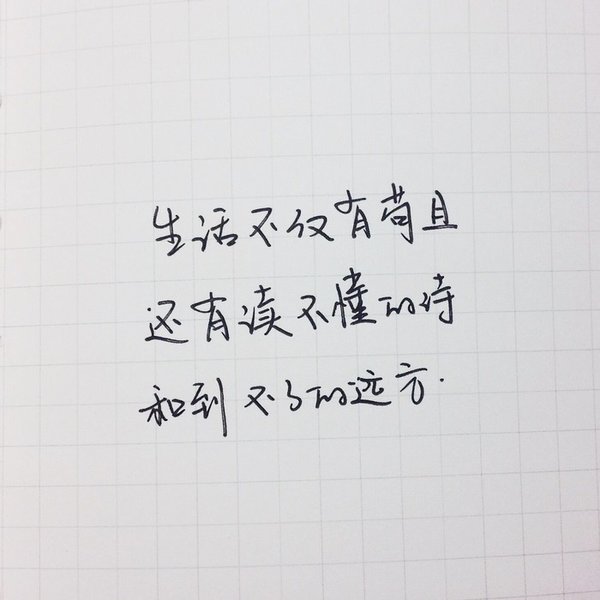 生活不仅有苟且
还有读不懂的诗
和到不了的远方.